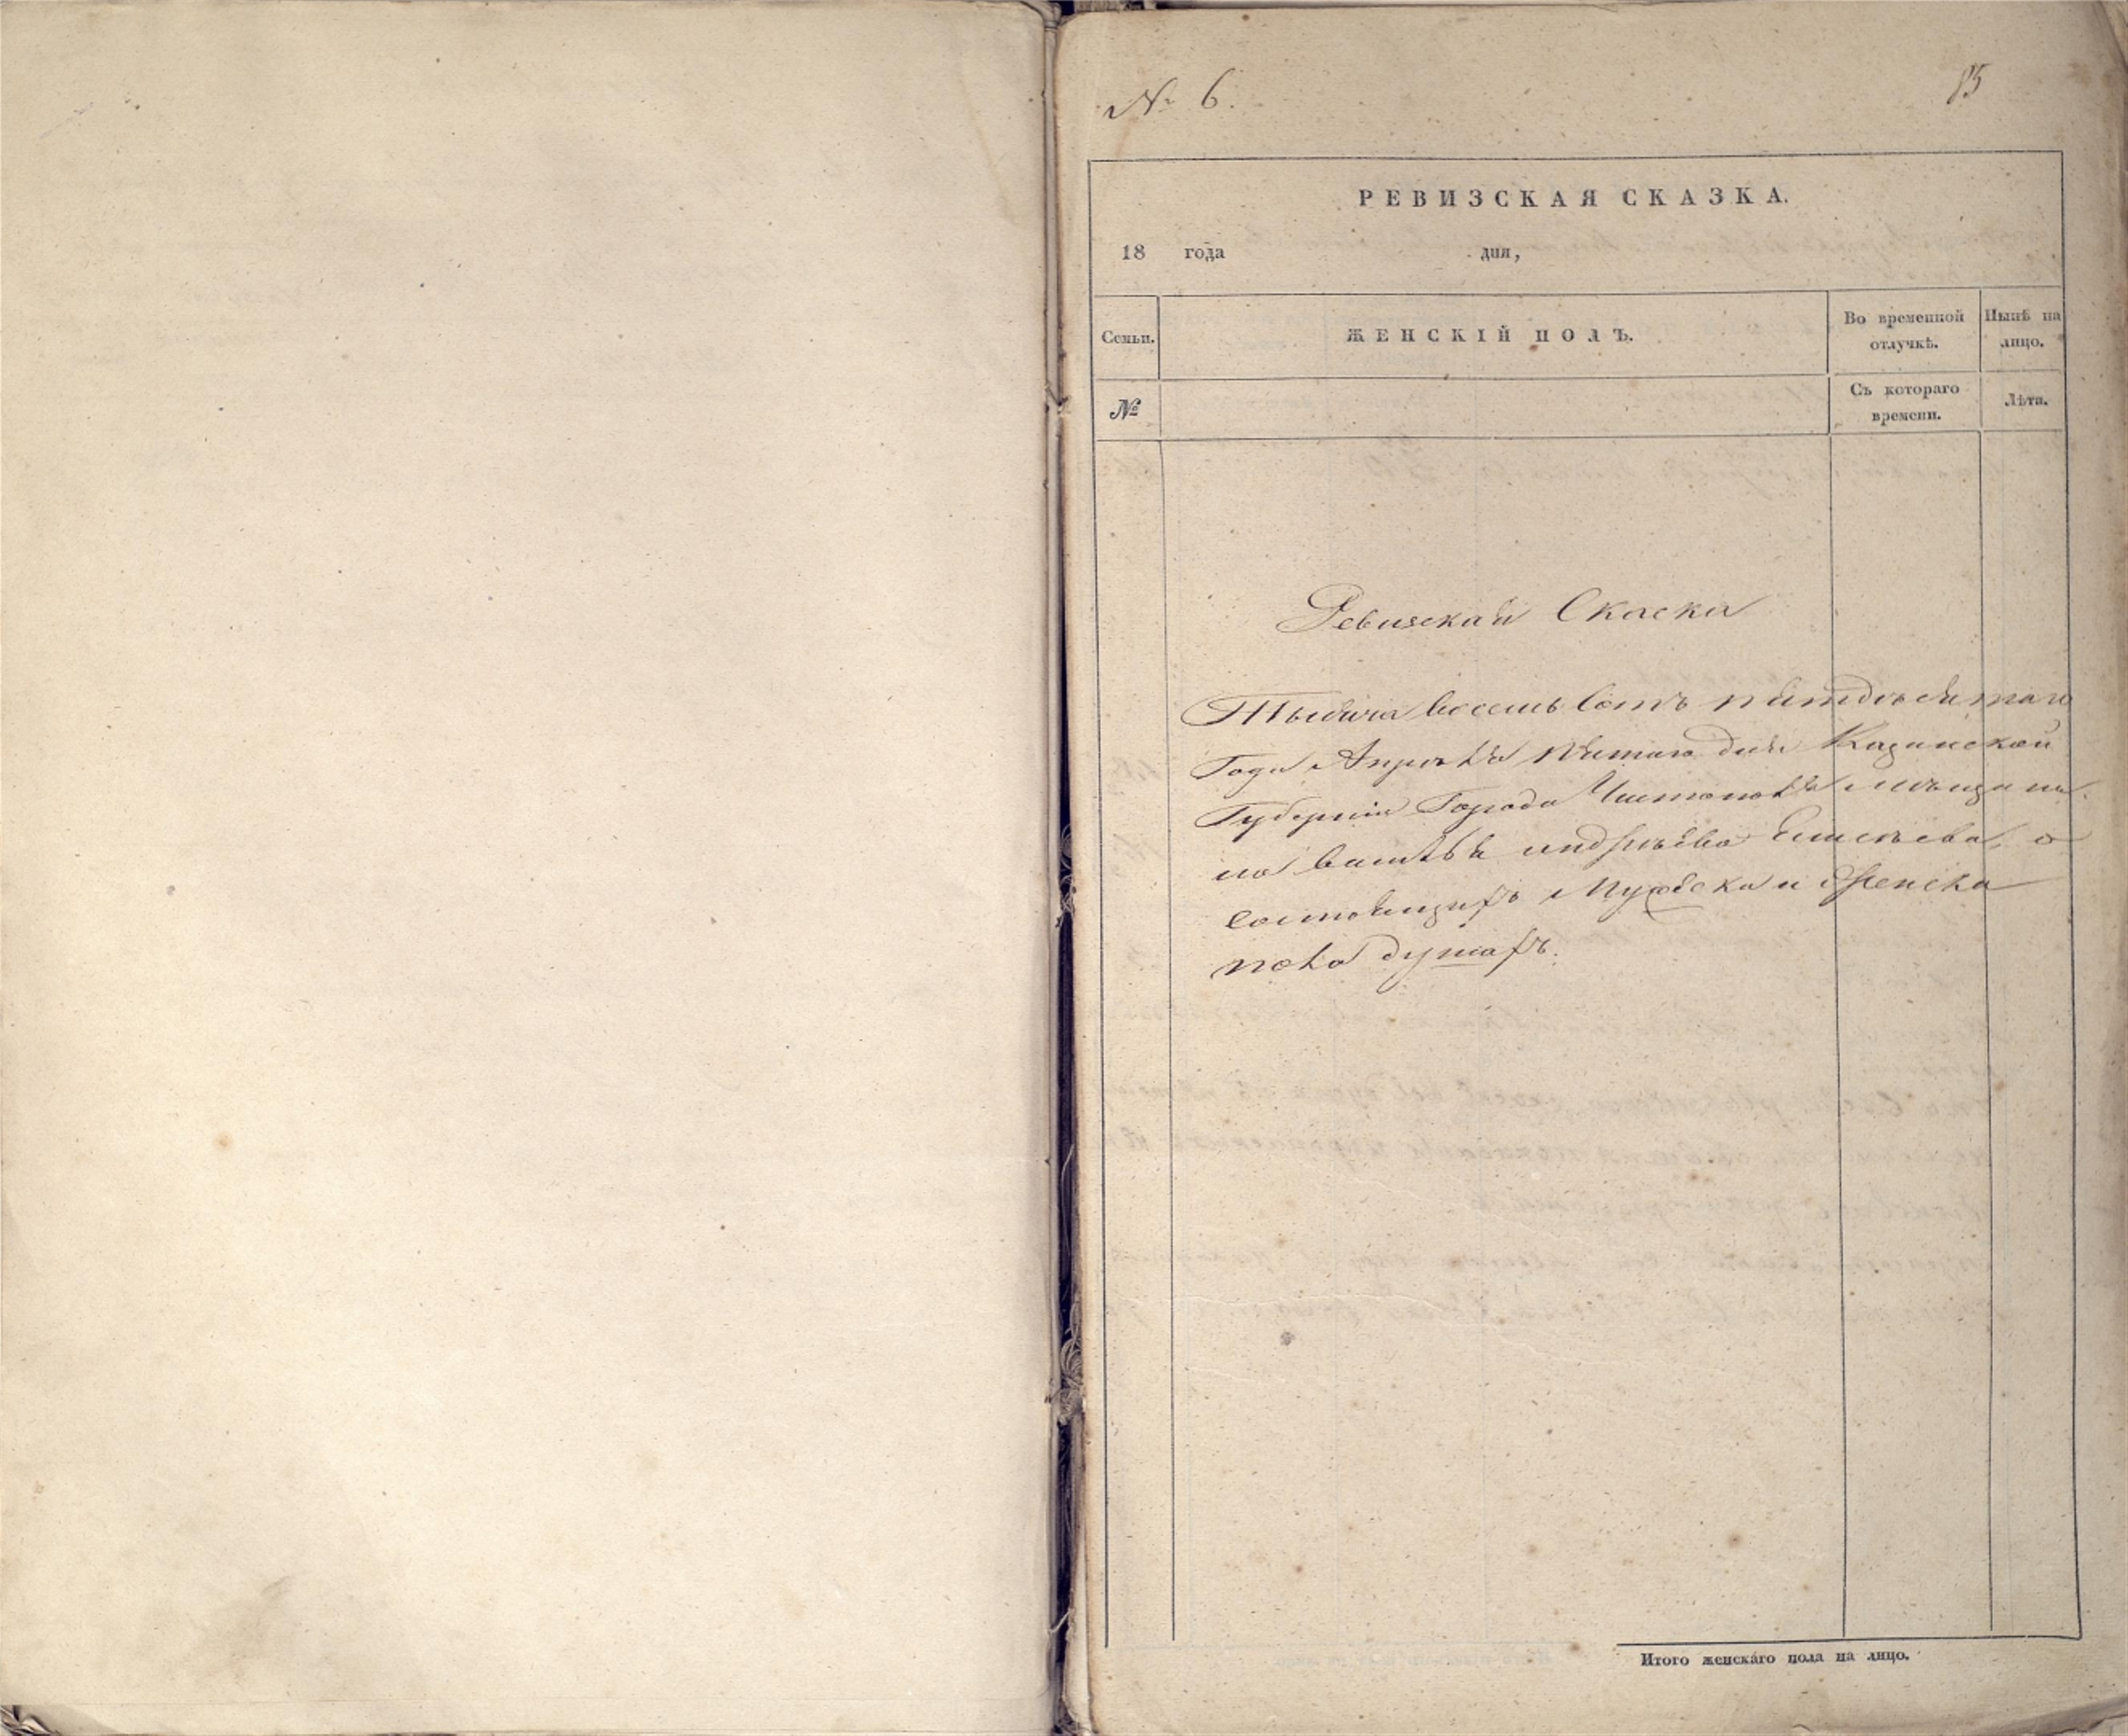 № 6.
85
РЕВИЗСКАЯ СКАЗКА.
18 года дня,
Семьи.
ЖЕНСКІЙ ПОЛЪ.
Во временной отлучкѣ.
Нынѣ на лицо.
№
Съ котораго времени.
Лѣта.
Ревизская Скаска
Тысяча восемь Сотъ пятдѣсятаго
Года Апрѣля пятаго дня Казанской
Губерніи Города Чистополя мѣщани
на василья андрѣева Елисѣева, о
состоящихъ Мужеска и Женска
пола душахъ.
Итого женскаго пола на лицо.